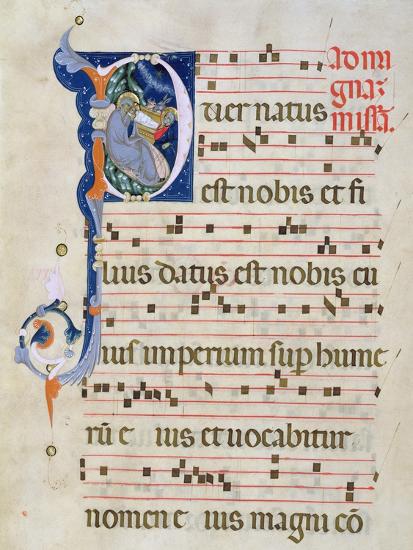 Ad ma
gnaz
missā.
Puer natus
est nobis et fi
lius datus est nobis cu
ius imperium suꝑ hume
rū e ius et uocabitur
nomen e ius magni cō